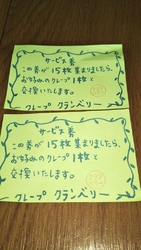 サービス券
この券が15枚集まりましたら、
お好みのクレープ1枚と
交換いたします。
クレープ クランベリー
サービス券
この券が15枚集まりましたら、
お好みのクレープ1枚と
交換いたします。
クレープ クランベリー